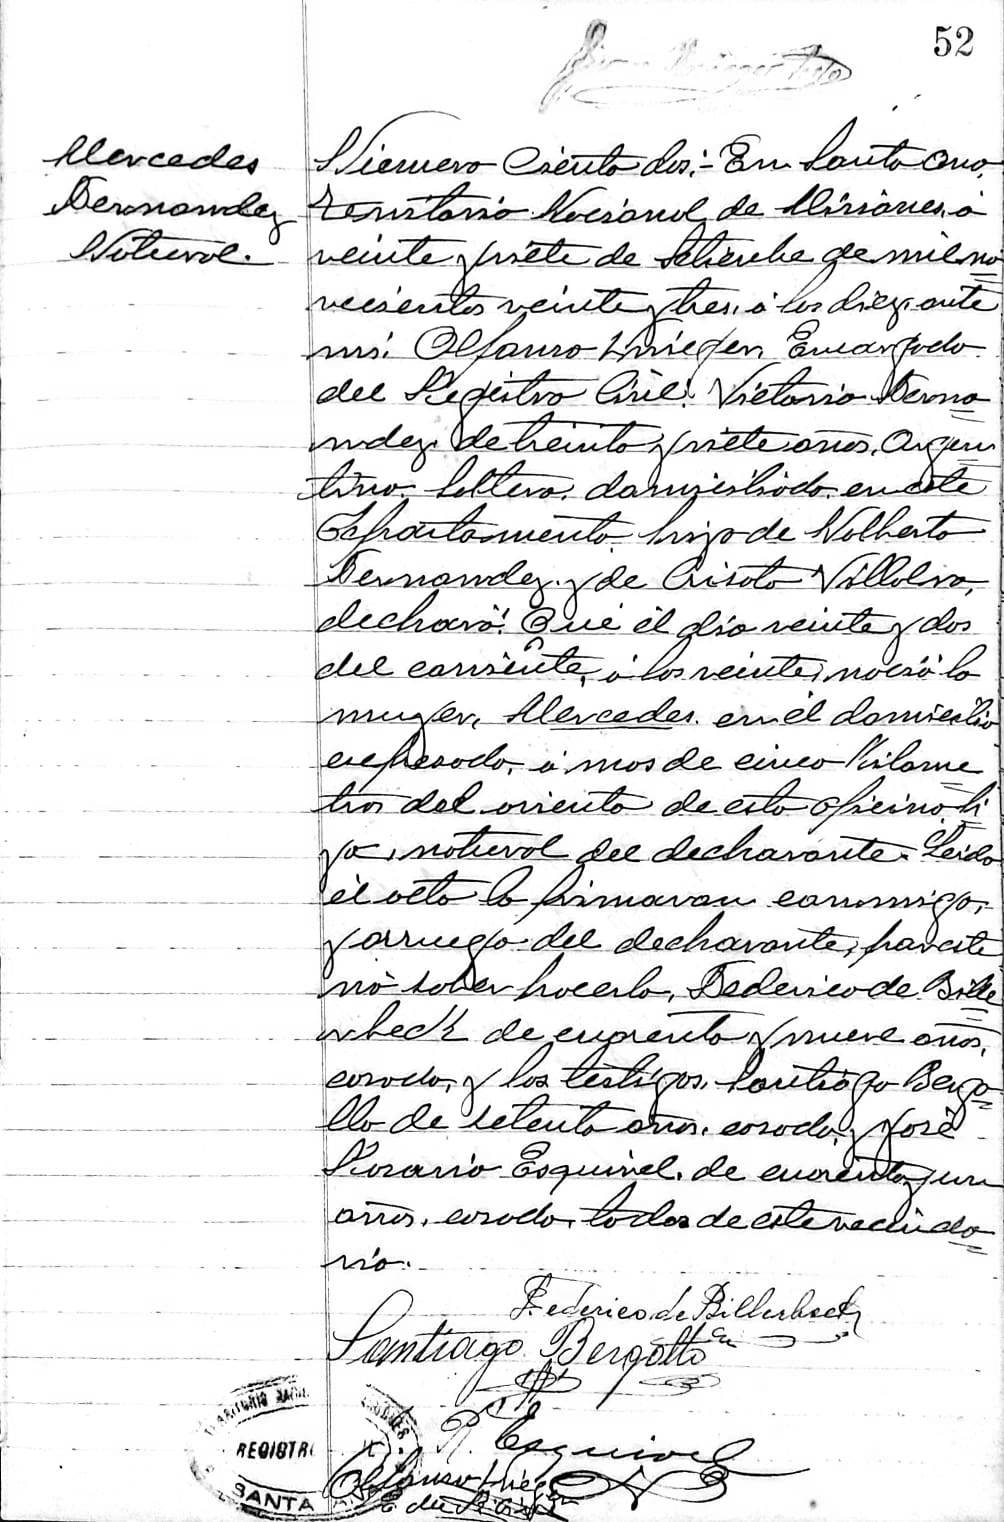 52
Mercedes
Fernandez
Natural.
Número Ciento dos:- En Santa Ana,
Territorio Nacional de Misiones, á
veinte y siete de Setiembre de mil no
vecientos veinte y tres, á las diez, ante
mi: Encargado
del Registro Civil: Victorio Ferna
ndez, de treinta y siete años, Argen
tino, Soltero, domiciliado en este
Departamento, hijo de Nolberto
Fernandez y de Villalva,
declaró: Que el dia veinte y dos
del corriente, á las veinte, nació la
mujer, Mercedes, en el domicilio
expresado, á mas de cinco Kilome
tros del asiento de esta oficina, hi
ja, natural del declarante. Leida
el acta la firmaran conmigo,
y arruego del declarante, por este
no saber hacerlo, Federico de Bille
rbeck de cuarenta y nueve años,
casado, y los testigos, Santiago Bergo
tto de setenta años, casado, y José
Rosario Esquivel, de cuarenta y un
años, casado, todos de este vecinda
rio.
Federico de Billerbeck
Santiago Bergotto
R. Esquivel
TERRITORIO
REGISTR
SANTA